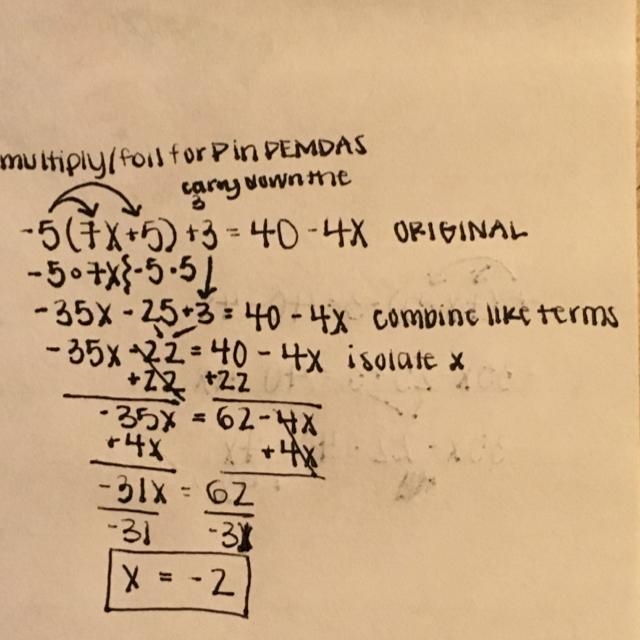 multiply/foil for P in PEMDAS
carry down the
3
-5(7x+5)+3 = 40-4x ORIGINAL
-5•7x}-5•5
-35x-25+3 = 40-4x combine like terms
-35x-22 = 40-4x isolate x
+22 +22
-35x = 62-4x
+4x +4x
-31x = 62
-31 -31
x = -2